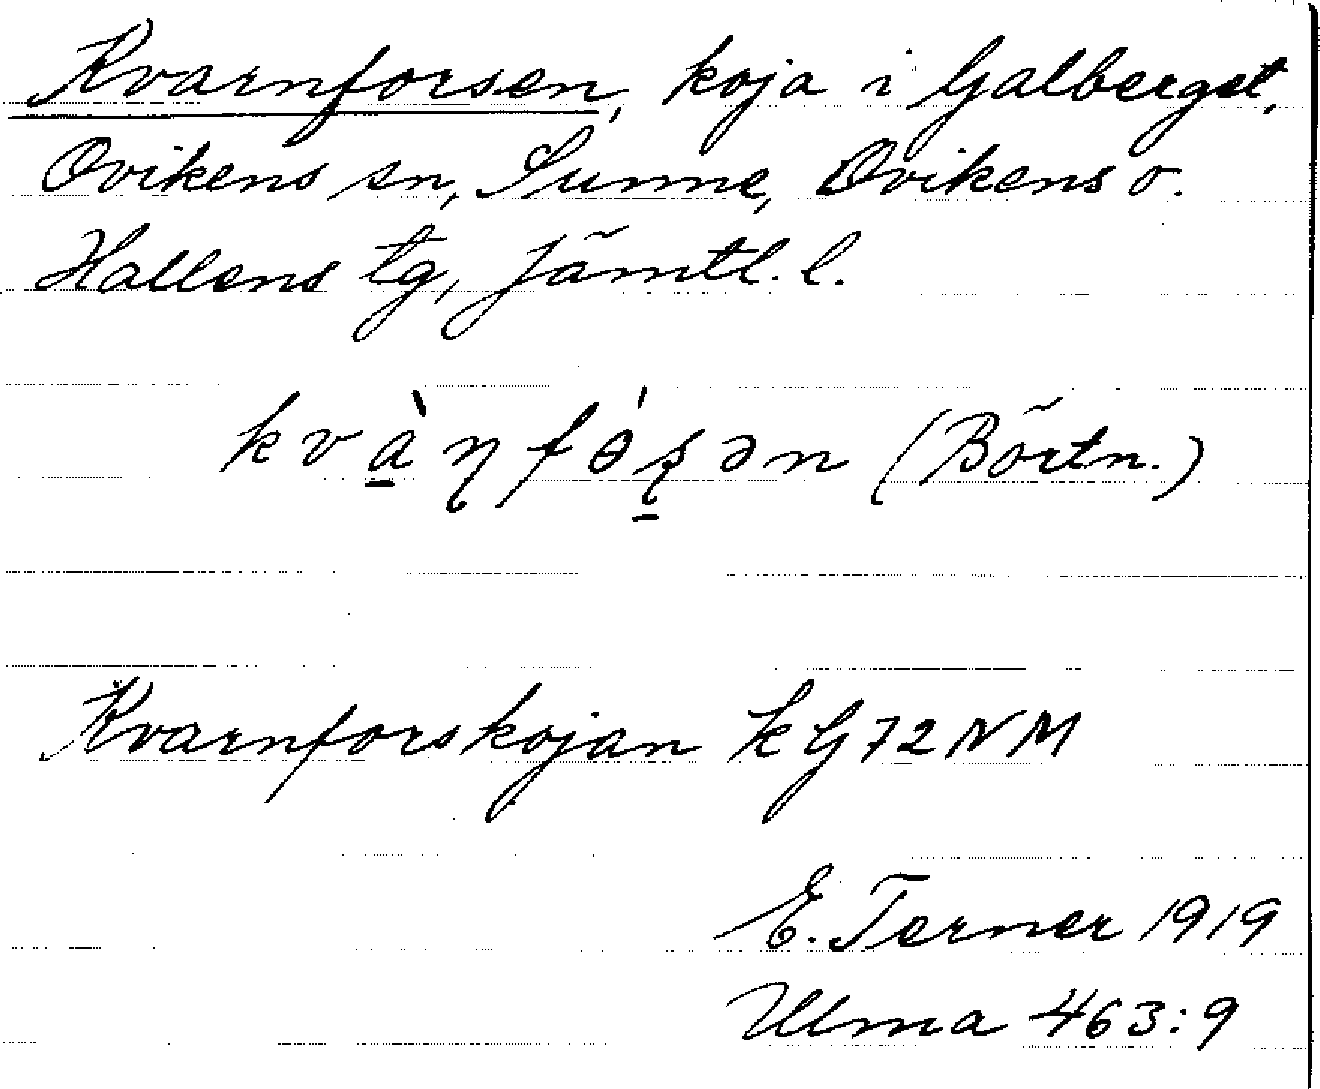 Kvarnforsen, koja i Galberget,
Ovikens sn, Sunne, Ovikens o.
Hallens tg, Jämtl. l.
kvàɳfɵ́ʂən (Börtn.)
Kvarnforskojan kG72NM
E. Terner 1919
Ulma 463:9